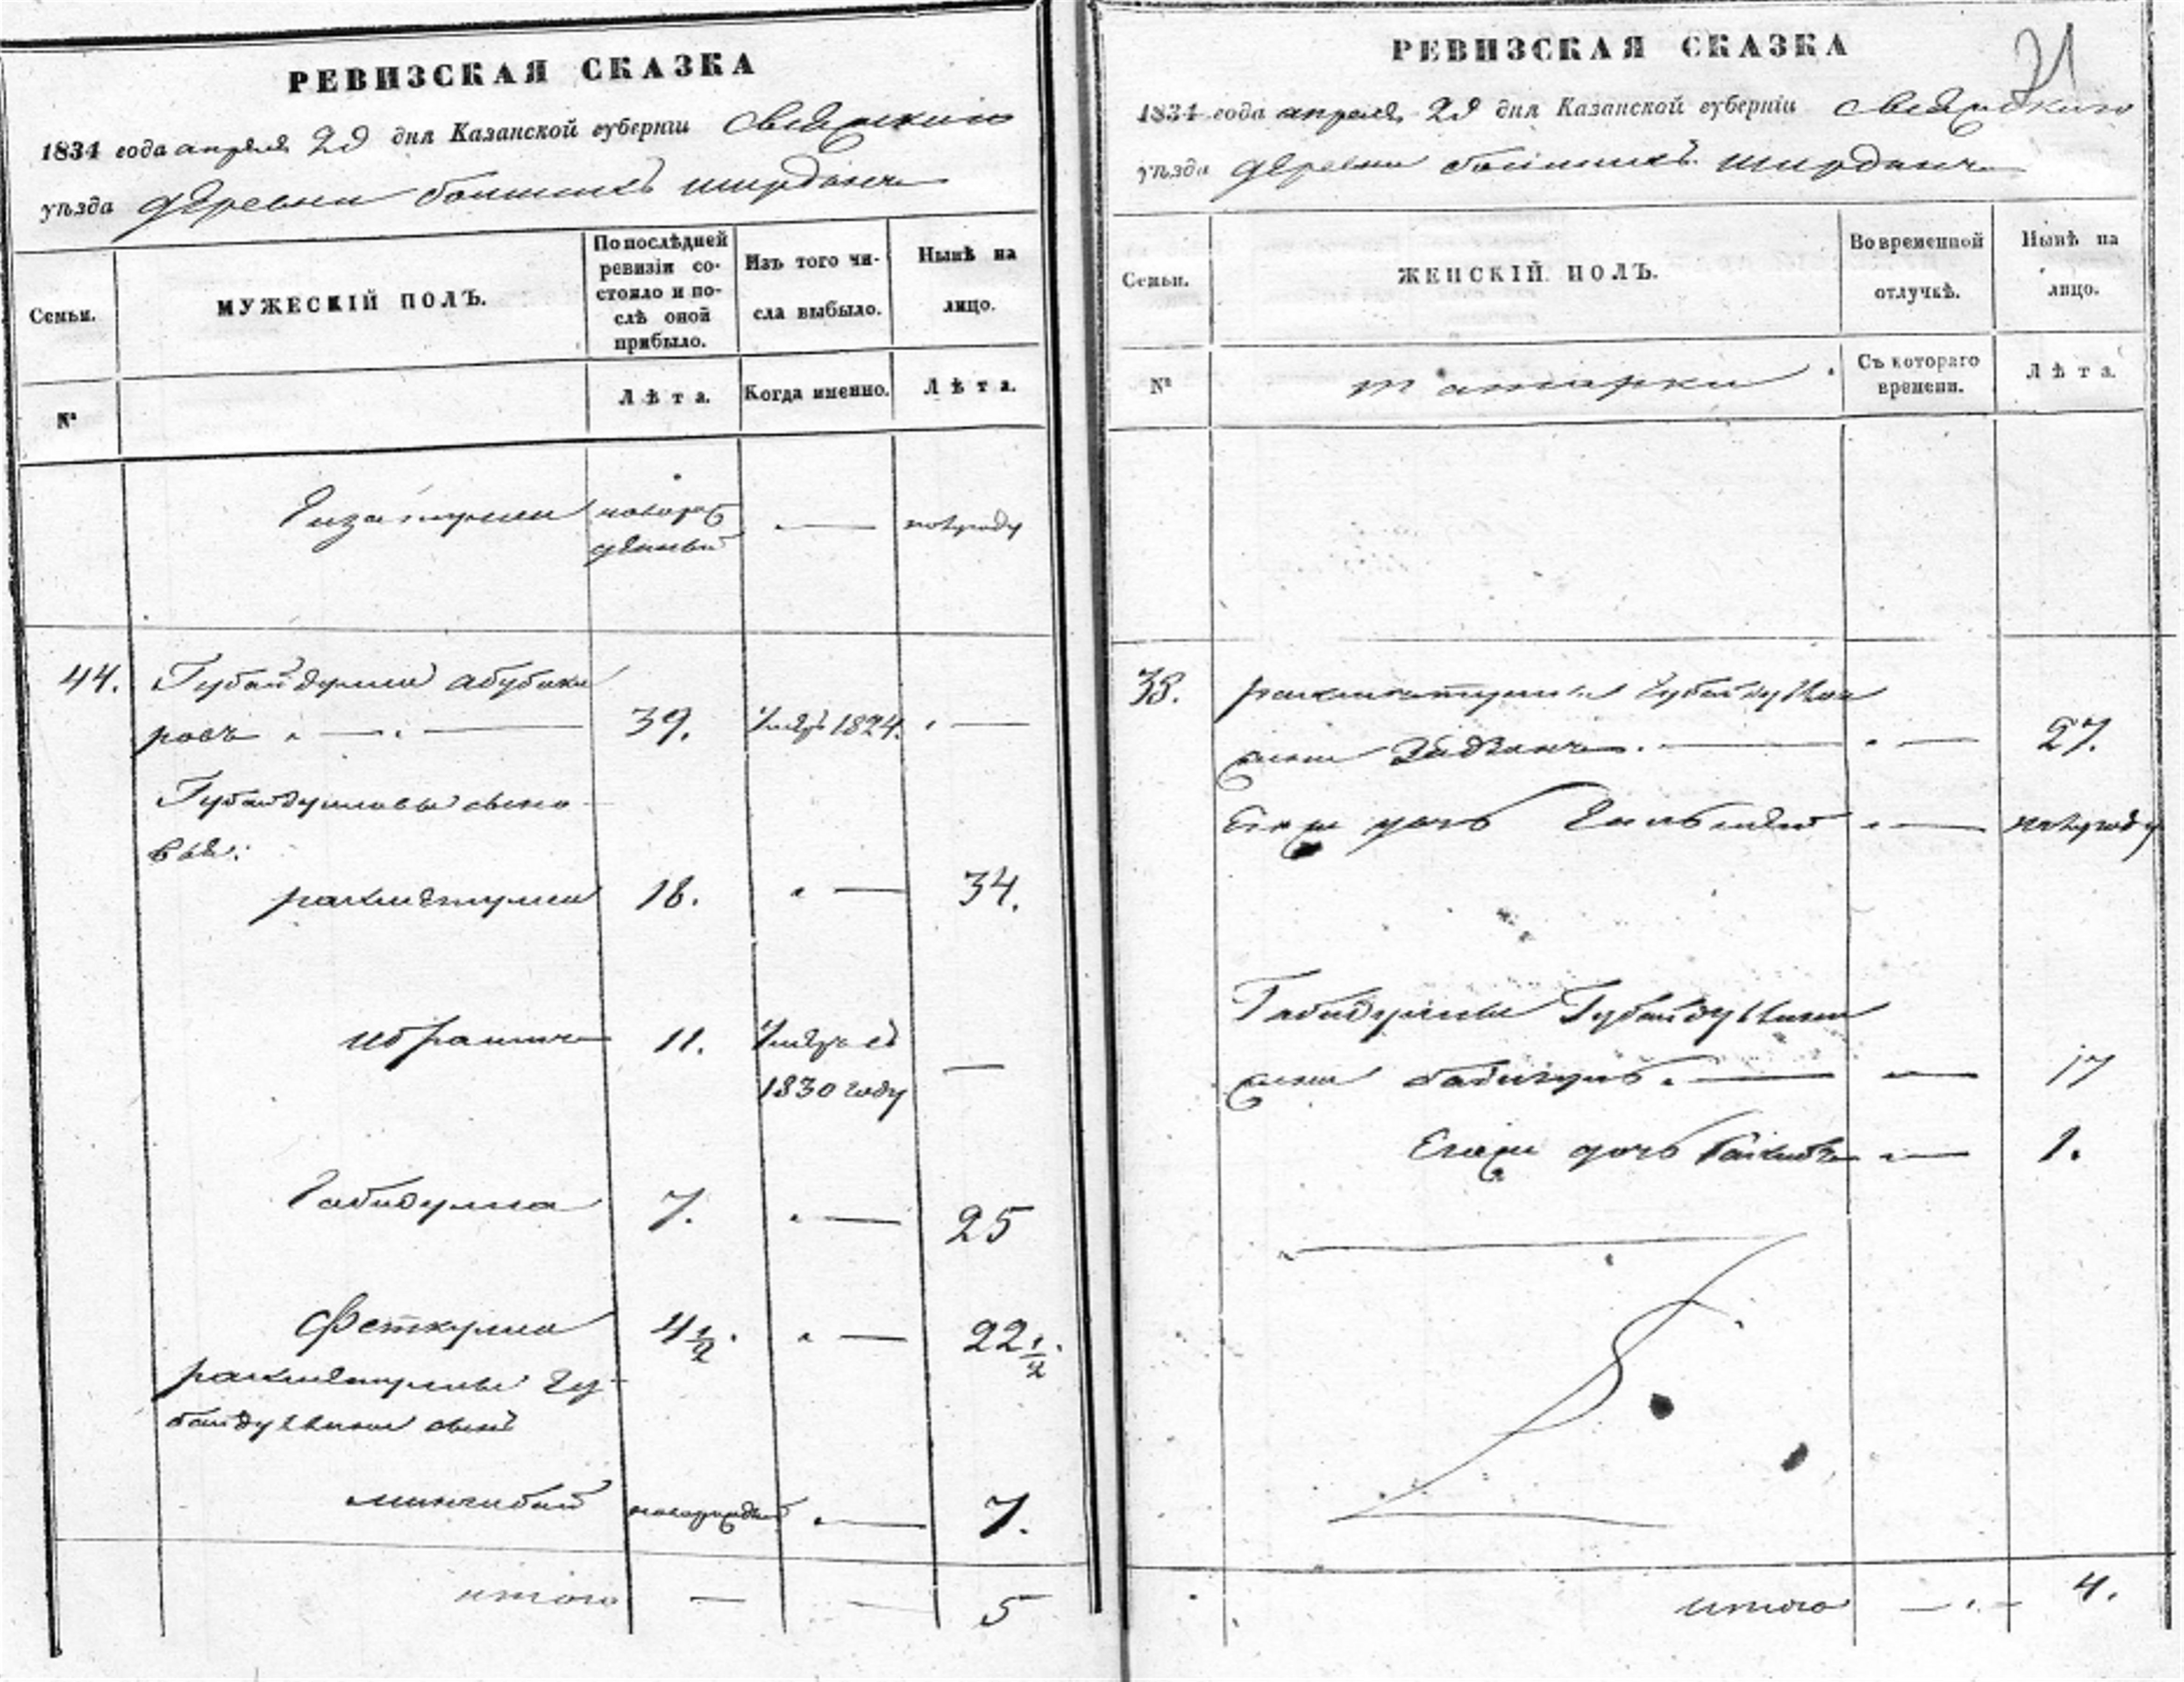 РЕВИЗСКАЯ СКАЗКА
1834 года апреля 2д дня Казанской губернiи свiяжскаго
уѣзда деревни большихъ ширданъ
Семьи.
МУЖЕСКIЙ ПОЛЪ.
По послѣдней
ревизiи со-
стояло и по-
слѣ оной
прибыло.
Изъ того чи-
сла выбыло.
Нынѣ на
лицо.
№
Лѣта.
Когда именно.
Лѣта.
новорож
денный
— полгоду
44. Губайдулла абубаки
ровъ — 39. 1824. —
Губайдулловы сыно
вья:
рахметулла 18. — 34.
ибрагимъ 11.
1830 году —
Габидулла 7. — 25
Феткулла 4½. — 22½.
рахметуллы Гу-
байдуллина сынъ
новорожденный — 7.
итого — — 5
РЕВИЗСКАЯ СКАЗКА
1834 года апреля 2д дня Казанской губернiи свiяжскаго
уѣзда деревни большихъ ширданъ
Семьи.
ЖЕНСКIЙ ПОЛЪ.
Во временной
отлучкѣ.
Нынѣ на
лицо.
№
татарки
Съ котораго
времени.
Лѣта.
рахметуллы Губайдуллина
жена — — 27.
Его же дочь — полгоду
Габидуллы Губайдуллина
жена — — 17
Его же дочь — 1.
итого — — 4.